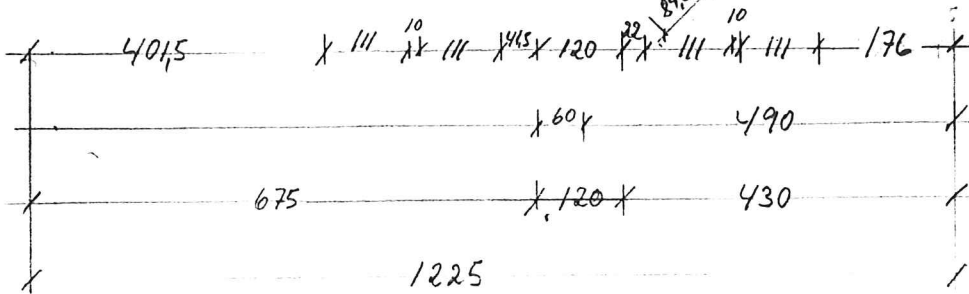 401,5 111 10 111 41,5 120 22 111 10 111 176
60 490
675 120 430
1225